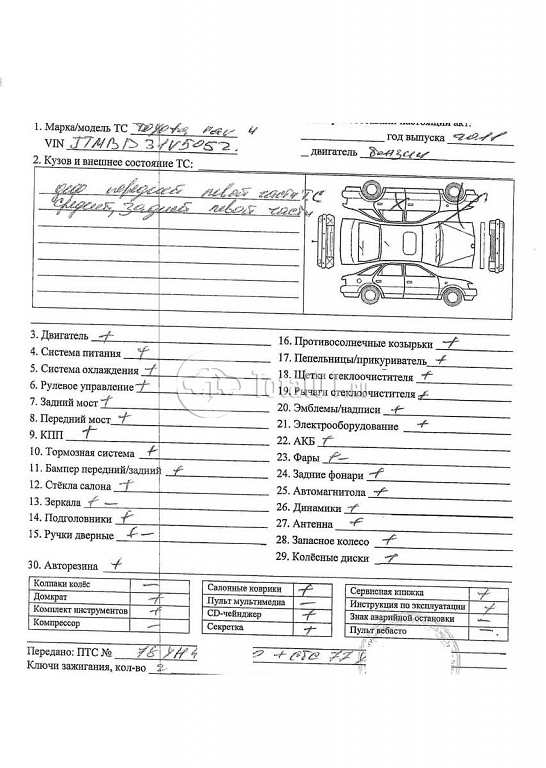 настоящий акт.
1. Марка/модель ТС тойота rav 4
год выпуска 2011
VIN JTMBD31V5052
двигатель бензин
2. Кузов и внешнее состояние ТС:
дтр передней левой части ТС
средней, задней левой части
3. Двигатель +
4. Система питания +
5. Система охлаждения +
6. Рулевое управление +
7. Задний мост +
8. Передний мост +
9. КПП +
10. Тормозная система +
11. Бампер передний/задний +
12. Стёкла салона +
13. Зеркала + –
14. Подголовники +
15. Ручки дверные + –
16. Противосолнечные козырьки +
17. Пепельницы/прикуриватель +
18. Щетки стеклоочистителя +
19. Рычаги стеклоочистителя +
20. Эмблемы/надписи +
21. Электрооборудование +
22. АКБ +
23. Фары + –
24. Задние фонари +
25. Автомагнитола +
26. Динамики +
27. Антенна +
28. Запасное колесо +
29. Колёсные диски +
30. Авторезина +
Колпаки колёс –
Домкрат +
Комплект инструментов +
Компрессор –
Салонные коврики +
Пульт мультимедиа –
CD-чейнджер +
Секретка +
Сервисная книжка +
Инструкция по эксплуатации +
Знак аварийной остановки –
Пульт вебасто –
Передано: ПТС № 78 УН 4
+ СТС 77 У
Ключи зажигания, кол-во 2